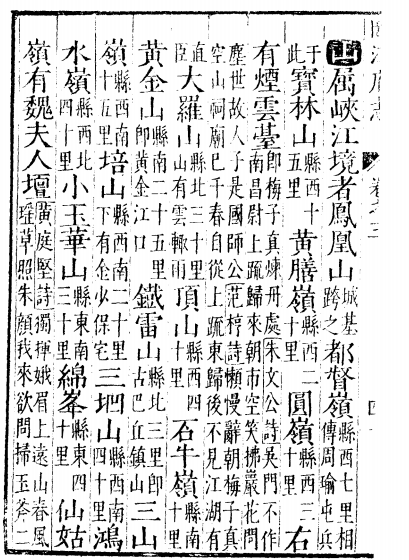 山属峽江境者鳳凰山城基跨之都督嶺縣西七里相傳周瑜屯兵
于此寶林山縣西十五里黄膳嶺縣西二十里圓嶺縣西三十里右
有煙雲䑓卽梅子真煉丹處朱文公詩吳門不作南昌尉上疏歸來朝市空笑拂巖花問
塵世故人子是國師公范梈詩懶慢辭朝梅子真空山祠廟巳千春自從上疏東歸後不見江湖有
直臣大羅山縣北三十里山有雲輙雨頂山縣西四十里石牛嶺縣南十里
黄金山縣南二十五里卽黄金江口鐵雷山縣北三里卽古巴丘鎮山三山
嶺縣西南十五里培山縣西南二十里下有金少保宅三垇山縣西南四十里鴻
水嶺縣西北四十里小玉華山縣東南三十里綿峯縣東四十里仙姑
嶺有魏夫人壇黄庭堅詩獨揮娥眉上遠山春風瑶草照朱顔我來欲問掃玉斧二